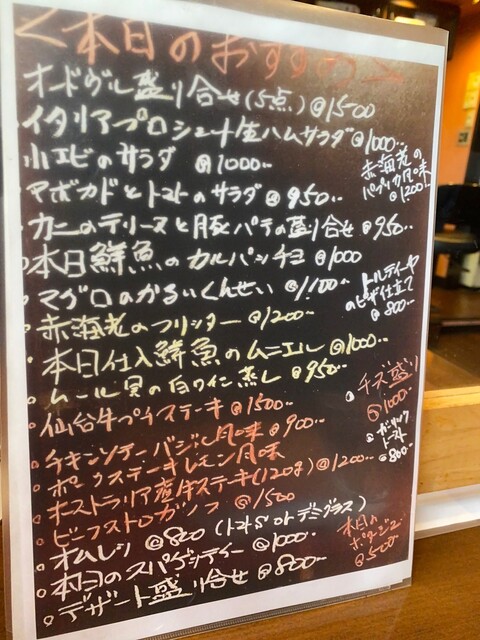 <本日のおすすめ>
オードヴル盛り合せ(5点) @1500
イタリアプロシュート生ハムサラダ @1000‥
小エビのサラダ @1000‥
アボカドとトマトのサラダ @950‥
カニのテリーヌと豚パテの盛り合せ @950‥
本日鮮魚のカルパッチョ @1000
マグロのかるいくんせい @1,100‥
赤海老のフリッター @1200‥
本日仕入鮮魚のムニエル @1000‥
ムール貝の白ワイン蒸し @950‥
仙台牛プチステーキ @1500‥
チキンソテーバジル風味 @900‥
ポークステーキレモン風味
オーストラリア産牛ステーキ(120g) @1200‥
ビーフストロガノフ @1500
オムレツ @800 (トマトS or デミグラス)
本日のスパゲッティー @1000
デザート盛り合せ @800‥
赤海老の
パプリカ風味
@1200‥
トルティーヤ
のピザ仕立て
@800‥
チーズ盛り
@1000‥
ガーリック
トースト
@800‥
本日の
ポタージュ
@500‥